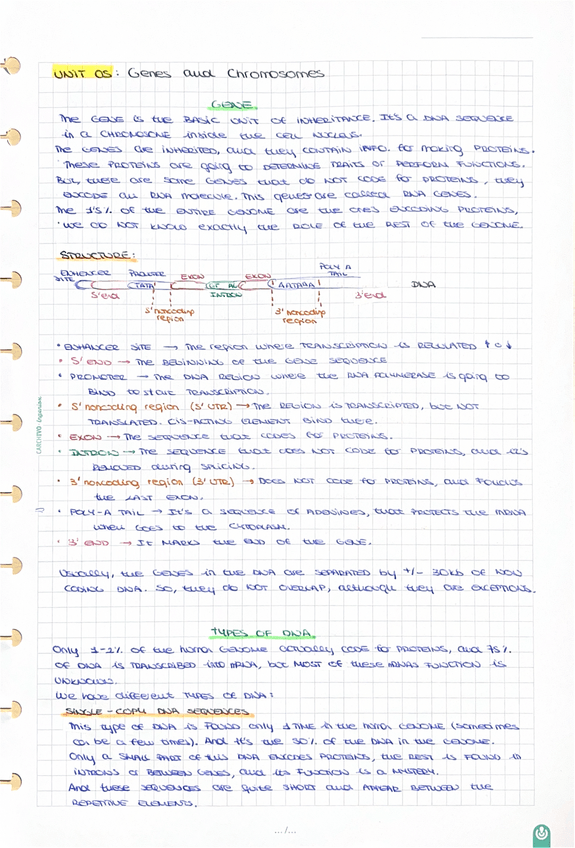 UNIT 05: Genes and Chromosomes
GENE
The GENE IS THE BASIC UNIT OF INHERITANCE. IT'S A DNA SEQUENCE
in a CHROMOSOME inside the CELL NUCLEUS.
The GENES ARE INHERITED, and they CONTAIN INFO. for MAKING PROTEINS.
These PROTEINS ARE going to DETERMINE TRAITS OR PERFORM FUNCTIONS.
BUT, there are some GENES that DO NOT CODE for PROTEINS, they
ENCODE an RNA MOLECULE. This genes are called RNA GENES.
The 1'5% OF the ENTIRE GENOME ARE the ONES ENCODING PROTEINS,
WE DO NOT KNOW exactly the ROLE OF the REST OF the GENOME.
STRUCTURE:
POLY A
TAIL
ENHANCER
SITE
PROMOTER
EXON
EXON
TATA
GT AG
AATAAA
DNA
5'end
INTRON
3'end
5'noncoding
region
3'noncoding
region
• ENHANCER SITE → The region where TRANSCRIPTION IS REGULATED ↑ o ↓
• 5' END → The BEGINNING OF the GENE SEQUENCE
• PROMOTER → The DNA REGION where the RNA POLYMERASE is going to
BIND TO start TRANSCRIPTION.
• 5' noncoding region (5' UTR) → The REGION IS TRANSCRIPTED, BUT NOT
TRANSLATED. CIS-ACTING ELEMENT BIND there.
• EXON → The SEQUENCE that CODES for PROTEINS.
• INTRON → The SEQUENCE that DOES NOT CODE for PROTEINS, and it's
REMOVED during SPLICING.
• 3' noncoding region (3' UTR) → DOES NOT CODE for PROTEINS, and FOLLOWS
the LAST EXON.
• POLY-A TAIL → IT'S a SEQUENCE OF ADENINES, that PROTECTS the mRNA
when GOES to the CYTOPLASM.
• 3' END → IT MARKS the END OF the GENE.
Usually, the GENES in the DNA are SEPARATED by +/- 30kb OF NON
CODING DNA. SO, they DO NOT OVERLAP, although they are EXCEPTIONS.
TYPES OF DNA
Only 1-2% OF the human GENOME actually CODE for PROTEINS, and 75%
OF DNA is TRANSCRIBED INTO RNA, but MOST OF these RNAs FUNCTION IS
UNKNOWN.
We have different TYPES OF DNA:
SINGLE-COPY DNA SEQUENCES
This type OF DNA IS FOUND only 1 TIME in the human GENOME (sometimes
can be a few times). And it's the 50% OF the DNA in the GENOME.
Only a SMALL PART OF this DNA ENCODES PROTEINS, the REST IS FOUND in
INTRONS or BETWEEN GENES, and its FUNCTION IS A MYSTERY.
And these SEQUENCES ARE quite SHORT and APPEAR BETWEEN the
REPETITIVE ELEMENTS.
.../...